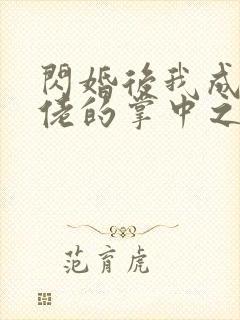 閃婚後我成
佬的掌中之
范育虎